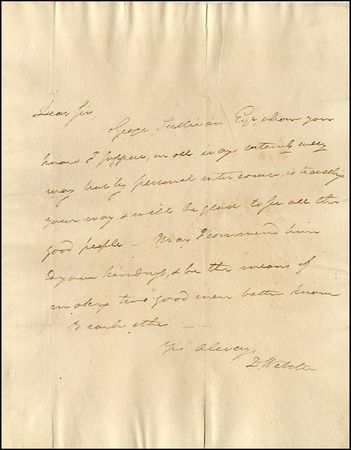 Dear Sir
George Sullivan Esqr whom you
know I suppose, in all ways certainly every
way but by personal intercourse, is travelling
your way & will be glad to see all the
good people — May I commend him
to your kindness, & be the means of
making two good men better known
to each other —
Yrs Always
D. Webster